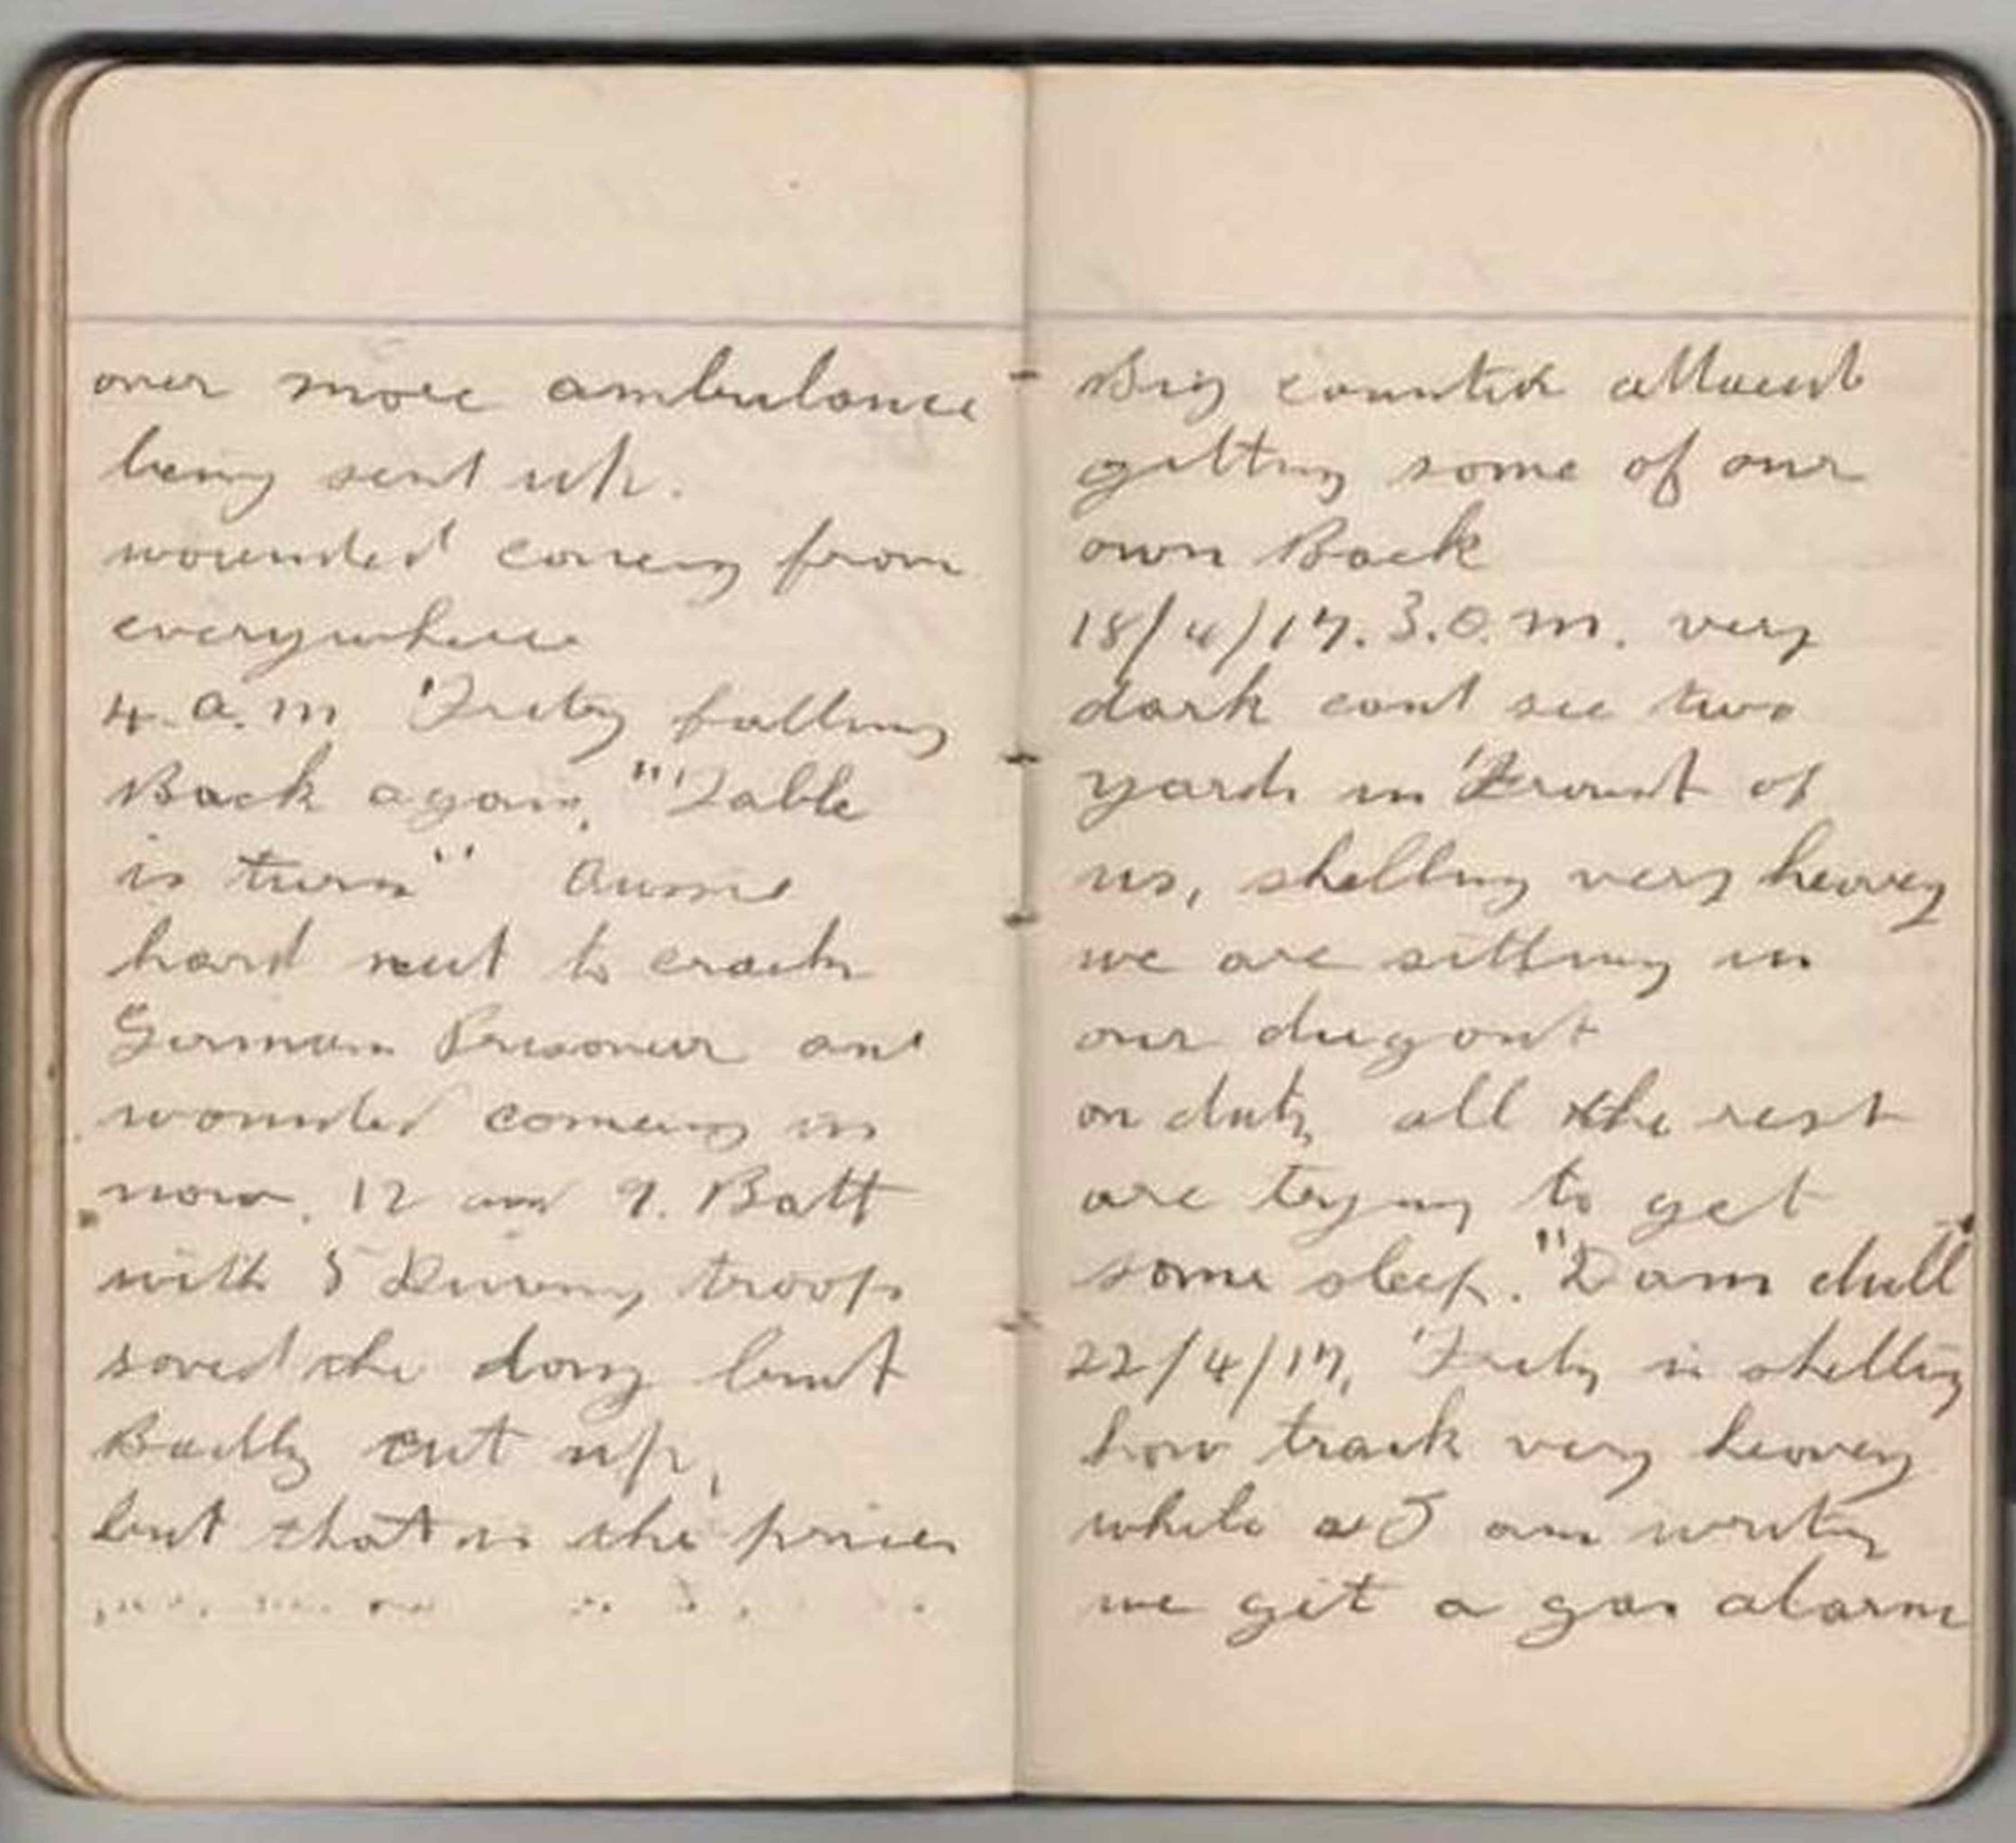 over more ambulance
being sent up.
wounded coming from
everywhere
4. a. m Fritz falling
Back again, "Table
is turn" Aussie
hard nut to crack
German Prisoner and
wounded comeing in
now. 12 and 9. Batt
with 5 Divi troops
saved the day but
Badly cut up,
but that is the prices
Big counter attack
getting some of our
own Back
18/4/17. 3. a. m. very
dark cant see two
yards in Frount of
us, shelling very heavey
we are sitting in
our dugout
on duty all the rest
are trying to get
some sleep. "Dam dull
22/4/17, Fritz is shelling
how track very heavey
while as I am writing
we get a gas alarm